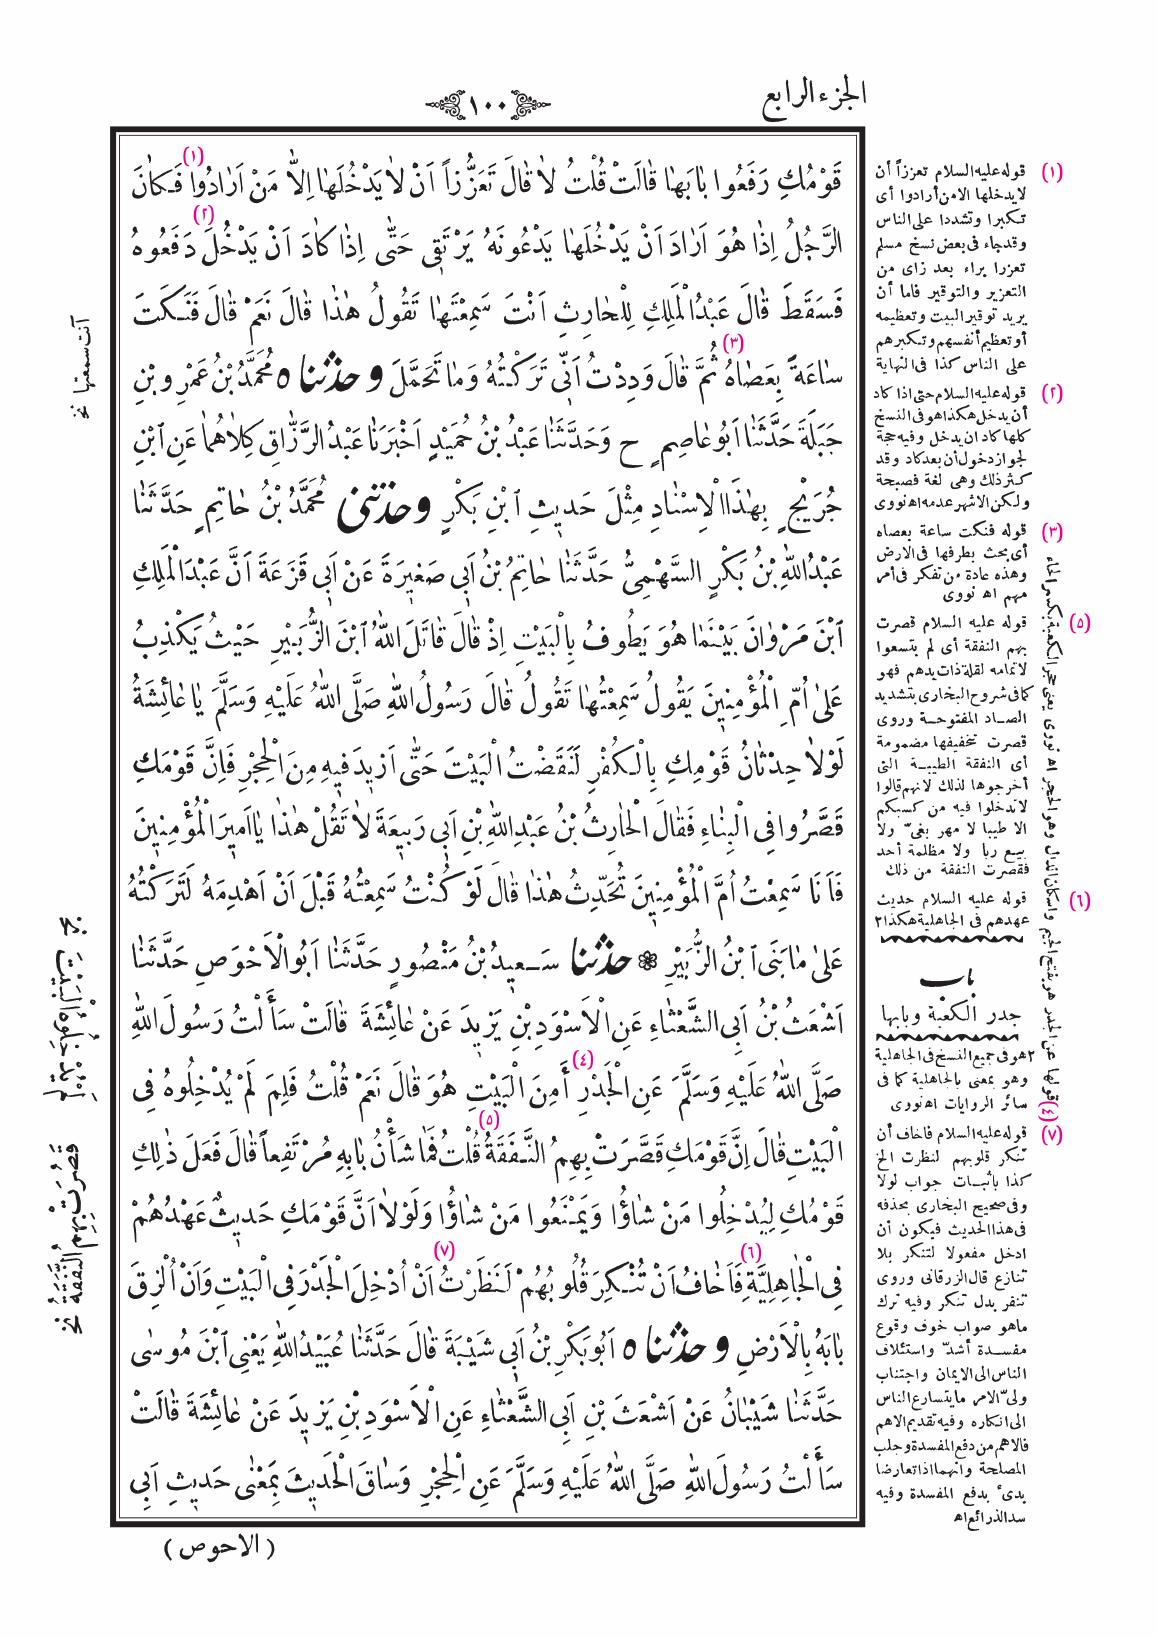 الجزء الرابع
١٠٠
قَوْمُكِ رَفَعُوا بَابَهَا قَالَتْ قُلْتُ لَا قَالَ تَعَزُّزاً اَنْ لَا يَدْخُلَهَا اِلَّا مَنْ اَرَادُوا (١) فَكَانَ
الرَّجُلُ اِذَا هُوَ اَرَادَ اَنْ يَدْخُلَهَا يَدْعُونَهُ يَرْتَقِى حَتَّى اِذَا كَادَ اَنْ يَدْخُلَ (٢) دَفَعُوهُ
فَسَقَطَ قَالَ عَبْدُ الْمَلِكِ لِلْحَارِثِ اَنْتَ سَمِعْتَهَا تَقُولُ هٰذَا قَالَ نَعَمْ قَالَ فَنَكَتَ
سَاعَةً بِعَصَاهُ (٣) ثُمَّ قَالَ وَدِدْتُ اَنِّى تَرَكْتُهُ وَمَا تَحَمَّلَ وحدثنا ٥ مُحَمَّدُ بْنُ عَمْرِو بْنِ
جَبَلَةَ حَدَّثَنَا اَبُو عَاصِمٍ ح وَحَدَّثَنَا عَبْدُ بْنُ حُمَيْدٍ اَخْبَرَنَا عَبْدُ الرَّزَّاقِ كِلَاهُمَا عَنِ ابْنِ
جُرَيْجٍ بِهٰذَا الْاِسْنَادِ مِثْلَ حَدِيثِ ابْنِ بَكْرٍ وحدثنى مُحَمَّدُ بْنُ حَاتِمٍ حَدَّثَنَا
عَبْدُ اللّٰهِ بْنُ بَكْرٍ السَّهْمِىُّ حَدَّثَنَا حَاتِمُ بْنُ اَبِى صَغِيرَةَ عَنْ اَبِى قَزَعَةَ اَنَّ عَبْدَ الْمَلِكِ
ابْنَ مَرْوَانَ بَيْنَمَا هُوَ يَطُوفُ بِالْبَيْتِ اِذْ قَالَ قَاتَلَ اللّٰهُ ابْنَ الزُّبَيْرِ حَيْثُ يَكْذِبُ
عَلَى اُمِّ الْمُؤْمِنِينَ يَقُولُ سَمِعْتُهَا تَقُولُ قَالَ رَسُولُ اللّٰهِ صَلَّى اللّٰهُ عَلَيْهِ وَسَلَّمَ يَا عَائِشَةُ
لَوْلَا حِدْثَانُ قَوْمِكِ بِالْكُفْرِ لَنَقَضْتُ الْبَيْتَ حَتَّى اَزِيدَ فِيهِ مِنَ الْحِجْرِ فَاِنَّ قَوْمَكِ
قَصَّرُوا فِى الْبِنَاءِ فَقَالَ الْحَارِثُ بْنُ عَبْدِ اللّٰهِ بْنِ اَبِى رَبِيعَةَ لَا تَقُلْ هٰذَا يَا اَمِيرَ الْمُؤْمِنِينَ
فَاَنَا سَمِعْتُ اُمَّ الْمُؤْمِنِينَ تُحَدِّثُ هٰذَا قَالَ لَوْ كُنْتُ سَمِعْتُهُ قَبْلَ اَنْ اَهْدِمَهُ لَتَرَكْتُهُ
عَلَى مَا بَنَى ابْنُ الزُّبَيْرِ ❁ حدثنا سَعِيدُ بْنُ مَنْصُورٍ حَدَّثَنَا اَبُو الْاَحْوَصِ حَدَّثَنَا
اَشْعَثُ بْنُ اَبِى الشَّعْثَاءِ عَنِ الْاَسْوَدِ بْنِ يَزِيدَ عَنْ عَائِشَةَ قَالَتْ سَأَلْتُ رَسُولَ اللّٰهِ
صَلَّى اللّٰهُ عَلَيْهِ وَسَلَّمَ عَنِ الْجَدْرِ (٤) أَمِنَ الْبَيْتِ هُوَ قَالَ نَعَمْ قُلْتُ فَلِمَ لَمْ يُدْخِلُوهُ فِى
الْبَيْتِ قَالَ اِنَّ قَوْمَكِ قَصَّرَتْ بِهِمُ النَّفَقَةُ (٥) قُلْتُ فَمَا شَأْنُ بَابِهِ مُرْتَفِعاً قَالَ فَعَلَ ذٰلِكِ
قَوْمُكِ لِيُدْخِلُوا مَنْ شَاؤُا وَيَمْنَعُوا مَنْ شَاؤُا وَلَوْلَا اَنَّ قَوْمَكِ حَدِيثٌ عَهْدُهُمْ
فِى الْجَاهِلِيَّةِ (٦) فَاَخَافُ اَنْ تُنْكِرَ قُلُوبُهُمْ (٧) لَنَظَرْتُ اَنْ اُدْخِلَ الْجَدْرَ فِى الْبَيْتِ وَاَنْ اُلْزِقَ
بَابَهُ بِالْاَرْضِ وحدثنا ٥ اَبُو بَكْرِ بْنُ اَبِى شَيْبَةَ قَالَ حَدَّثَنَا عُبَيْدُ اللّٰهِ يَعْنِى ابْنَ مُوسَى
حَدَّثَنَا شَيْبَانُ عَنْ اَشْعَثَ بْنِ اَبِى الشَّعْثَاءِ عَنِ الْاَسْوَدِ بْنِ يَزِيدَ عَنْ عَائِشَةَ قَالَتْ
سَأَلْتُ رَسُولَ اللّٰهِ صَلَّى اللّٰهُ عَلَيْهِ وَسَلَّمَ عَنِ الْحِجْرِ وَسَاقَ الْحَدِيثَ بِمَعْنَى حَدِيثِ اَبِى
( الاحوص )
(١) قوله عليه السلام تعززاً أن
لا يدخلها الا من أرادوا أى
تكبرا وتشددا على الناس
وقد جاء فى بعض نسخ مسلم
تعزرا براء بعد زاى من
التعزير والتوقير فاما أن
يريد توقير البيت وتعظيمه
أو تعظيم أنفسهم وتكبرهم
على الناس كذا فى النهاية
(٢) قوله عليه السلام حتى اذا كاد
أن يدخل هكذا هو فى النسخ
كلها كاد ان يدخل وفيه حجة
لجواز دخول أن بعد كاد وقد
كثر ذلك وهى لغة فصيحة
ولكن الاشهر عدمه اه نووى
(٣) قوله فنكت ساعة بعصاه
أى بحث بطرفها فى الارض
وهذه عادة من تفكر فى أمر
مهم اه نووى
(٥) قوله عليه السلام قصرت
بهم النفقة أى لم يتسعوا
لاتمامه لقلة ذات يدهم فهو
كما فى شروح البخارى بتشديد
الصاد المفتوحة وروى
قصرت تخفيفها مضمومة
أى النفقة الطيبة التى
أخرجوها لذلك لانهم قالوا
لا تدخلوا فيه من كسبكم
الا طيبا لا مهر بغىّ ولا
بيع ربا ولا مظلمة أحد
فقصرت النفقة من ذلك
(٦) قوله عليه السلام حديث
عهدهم فى الجاهلية هكذا٢
باب
جدر الكعبة وبابها
٢ هو فى جميع النسخ فى الجاهلية
وهو بمعنى بالجاهلية كما فى
سائر الروايات اه نووى
(٧) قوله عليه السلام فاخاف أن
تنكر قلوبهم لنظرت الخ
كذا باثبات جواب لولا
وفى صحيح البخارى بحذفه
فى هذا الحديث فيكون أن
ادخل مفعولا لتنكر بلا
تنازع قال الزرقانى وروى
تنفر بدل تنكر وفيه ترك
ماهو صواب خوف وقوع
مفسدة أشدّ واستئلاف
الناس الى الايمان واجتناب
ولىّ الامر مايتسارع الناس
الى انكاره وفيه تقديم الاهم
فالاهم من دفع المفسدة وجلب
المصلحة وانهما اذا تعارضا
بدئ بدفع المفسدة وفيه
سد الذرائع اه
(٤) قولها عن الجدر هو بفتح الجيم واسكان الدال وهو الحجر اه نووى يعنى حجر الكعبة بكسر الحاء
آنت سمعتها نخ
لَمْ يُدْخِلُوهُ الْبَيْتَ نخ
قَصُرَتْ بِهِمُ النَّفَقَةُ نخ